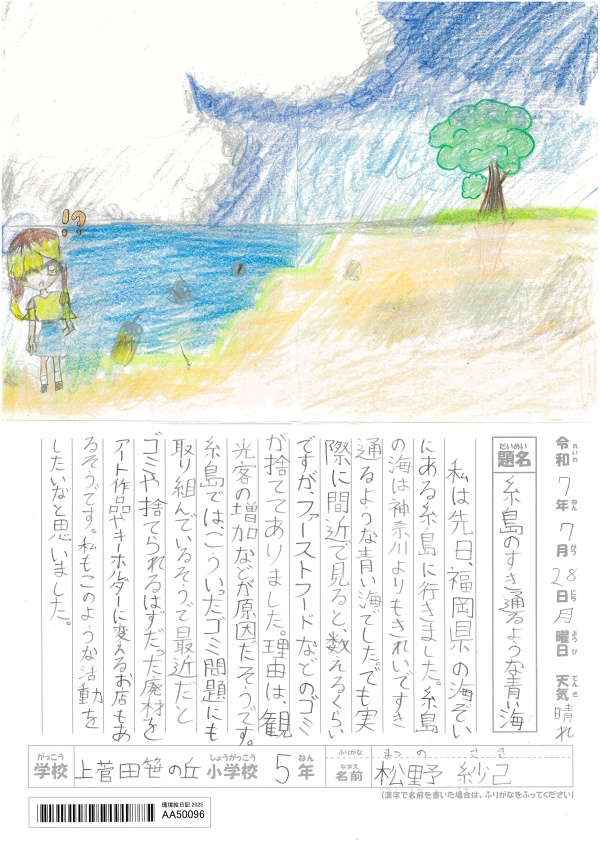 令和7年7月28日月曜日 天気晴れ
れいわ ねん がつ にち ようび てんき
だいめい
題名 糸島のすき通るような青い海
私は先日、福岡県の海ぞい
にある糸島に行きました。糸島
の海は神奈川よりもきれいですき
通るような青い海でした。でも実
際に間近で見ると、数えるくらい
ですが、ファーストフードなどのゴミ
が捨ててありました。理由は、観
光客の増加などが原因だそうです。
糸島では、こういったゴミ問題にも
取り組んでいるそうで最近だと
ゴミや捨てられるはずだった廃材を
アート作品やキーホルダーに変えるお店もあ
るそうです。私もこのような活動を
したいなと思いました。
がっこう しょうがっこう ねん
学校 上菅田笹の丘小学校 5年
ふりがな まつの ささ
なまえ
名前 松野 紗己
(漢字で名前を書いた場合は、ふりがなをふってください)
環境絵日記 2025
AA50096
!?